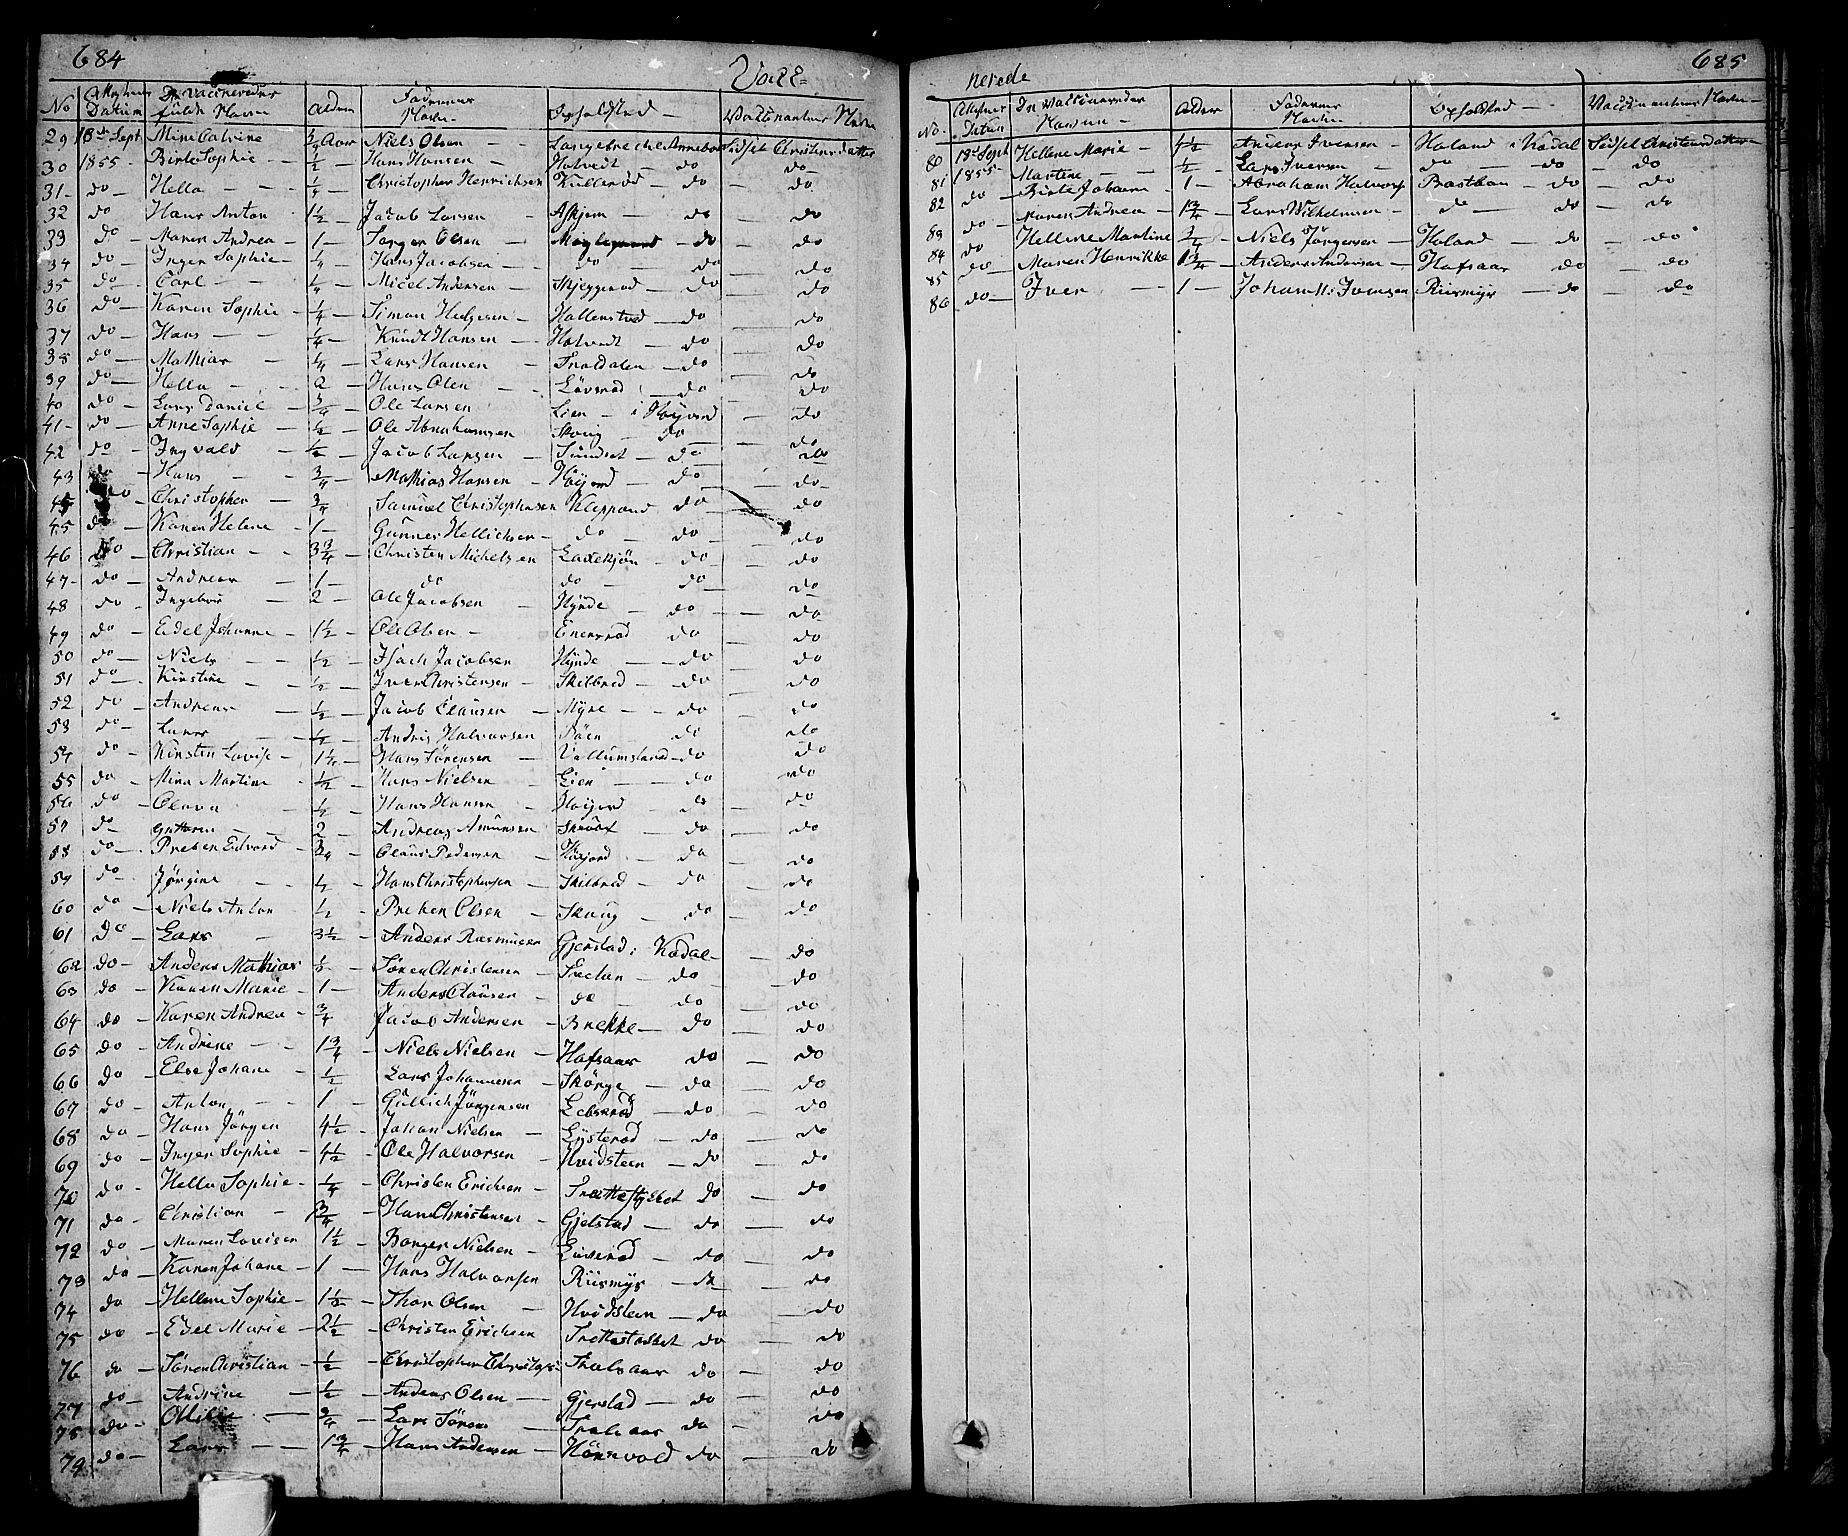 684
Vacc-
No Attestens Datum De Vaccineredes fulde Navne Alder Faderens Navn Opholdsted Vaccinanteur Navn
29 18de Sept. Mine Catrine 3/4 Aar Niels Olsen — Langebrecke Annebo Sidsel Christensdatter
30 1855 Birte Sophie — 1/2 — Hans Hansen — Holvedt do — do
31 do — Hella — 1/4 — Christopher Henrichsen Kullerød — do — do
32 do Hans Anton 1 1/2 — Jacob Larsen — Askjem — do — do
33 do — Maren Andrea — 1 — Jørger Olsen — — do — do
34 do — Inger Sophie — 1/4 — Hans Jacobsen — do — do — do
35 do — Carl — 1/4 — Micel Andersen — Skjeggerød — do — do
36 do — Karen Sophie — 1/4 — Simon — Hallenstvd — do — do
37 do — Hans — 1/4 — Knudt Hansen — Holvedt — do — do
38 do — Mathias 1/4 — Lars Hansen — Traldalen — do — do
39 do — Hella — 2 — Hans Olsen — Løvsrød — do — do
40 do — Lars Daniel — 3/4 — Ole Larsen Lien — i Høyord — do
41 - do — Anne Sophie — 1/2 — Ole Abrahamsen Skoug — do — do
42 do — Ingvald — 1/2 — Jacob Larsen — Sundset — do — do
43 do — Hans — 3/4 — Mathias Hansen — Høyord — do — do
45 do — Christopher — 3/4 Samuel Christophersen Kleppand do — do
45 do — Karen Helene — 1 — Gunner Hellichsen — do — do — do
46 do — Christian — 3 3/4 — Christen Michelsen Ladekjön — do — do
47 - do — Andreas — 1 — do do — do — do
48 do — Ingebor — 2 — Ole Jacobsen — Hynde — do — do
49 do — Edel Johanne — 1 1/2 — Ole Olsen — Enersrød do — do
50 do — Niels — 1/2 — Isach Jacobsen Hynde — do — do
51 do — Kirstine — 1/2 — Iver Christensen — Skilbred — do — do
52 do — Andreas — 1/2 — Jacob Clausen — Myre — do — do
53 do — Lars — 1/2 — Andris Halvorsen — do — do
54 do — Kirsten Lovise — 1 1/2 — Hans Sørensen — Vallumsland — do — do
55 do — Mina Martine — 1/2 — Hans Nielsen — Lien — do — do
56 do — Olava — 1/2 — Hans Hansen — Høyord — do — do
57 do — — 2 — Andreas Amunsen — do — do
58 do — Preben Edvard — 3/4 — Claus Pedersen — Høyord — do — do
59 do — Jørgine — 1/2 — Hans Christophersen — Skilbred — do — do
60 do — Niels Anton 1/2 — Preben Olsen — Skoug — do — do
61 do — Lars — 3 1/2 — Anders Rasmusen Gjerstad i Kodal — do
62 do — Anders Mathias 1/2 — Søren Christensen — do — do
63 do — Karen Marie — 1 — Anders Clausen — do — do — do
64 do — Karen Andrea — 3/4 Jacob Andersen — Brekke — do — do
65 do — Andrine — 1 3/4 — Niels Nielsen — Hafsaas do — do
66 do — Else Johane — 1/2 — Lars Johannesen — Skörge — do — do
67 do — Anton — 1 Gullich Jørgensen — do — do
68 do — Hans Jörgen 4 1/2 — Johan Nielsen — Lysterød — do — do
69 do — Inger Sophie — 4 1/2 — Ole Halvorsen — Hvidsteen — do — do
70 do — Hella Sophie — 1/4 — Christen Ericksen — Trættestykket do — do
71 do — Christian — 3/4 — Hans Christensen — Gjelstad — do — do
72 do — Maren Lovisen 1 1/2 — Borger Nielsen — — do — do
73 do — Karen Johane — 1 — Hans Halvorsen Riismyr — do — do
74 do — Hellene Sophie — 1 1/2 — Thor Olsen — Hvidsteen — do — do
75 do — Edel Marie — 2 1/2 — Christen Ericksen — do — do
76 do — Søren Christian — 1/2 — Christopher Christoph — do — do
77 do — Andrine — 1/2 — Anders Olsen — Gjerstad — do — do
78 do — — 3/4 — Lars Sören — do — do
79 do — Lars — 1 3/4 — Hans Andersen — do — do
685
nerede
No. Attestens Datum De Vaccineredes Navne — Alder Faderens Navn Opholdsted — Vaccinanteur Navn —
80 18de Sept. Hellene Marie — 4 1/2 — Anders Iversen — Holand i Kodal Sidsel Christensdatter —
81 1855 — Martine — 1/2 — Lars Iversen — do — do — do
82 do — Birte Johanne — 1 — Abraham Halvors Bastban — do — do
83 do — Maren Andrea — 1 3/4 — Lars Wilhelmsen — do — do — do
84 do Hellene Martine 3/4 — Niels Jørgensen — Holand — do — do
85 do — Maren Henrikke 1 3/4 — Anders Andersen — Hafsaas do — do
86 do — Iver — 1 — Johan Iversen Riismyr — do — do